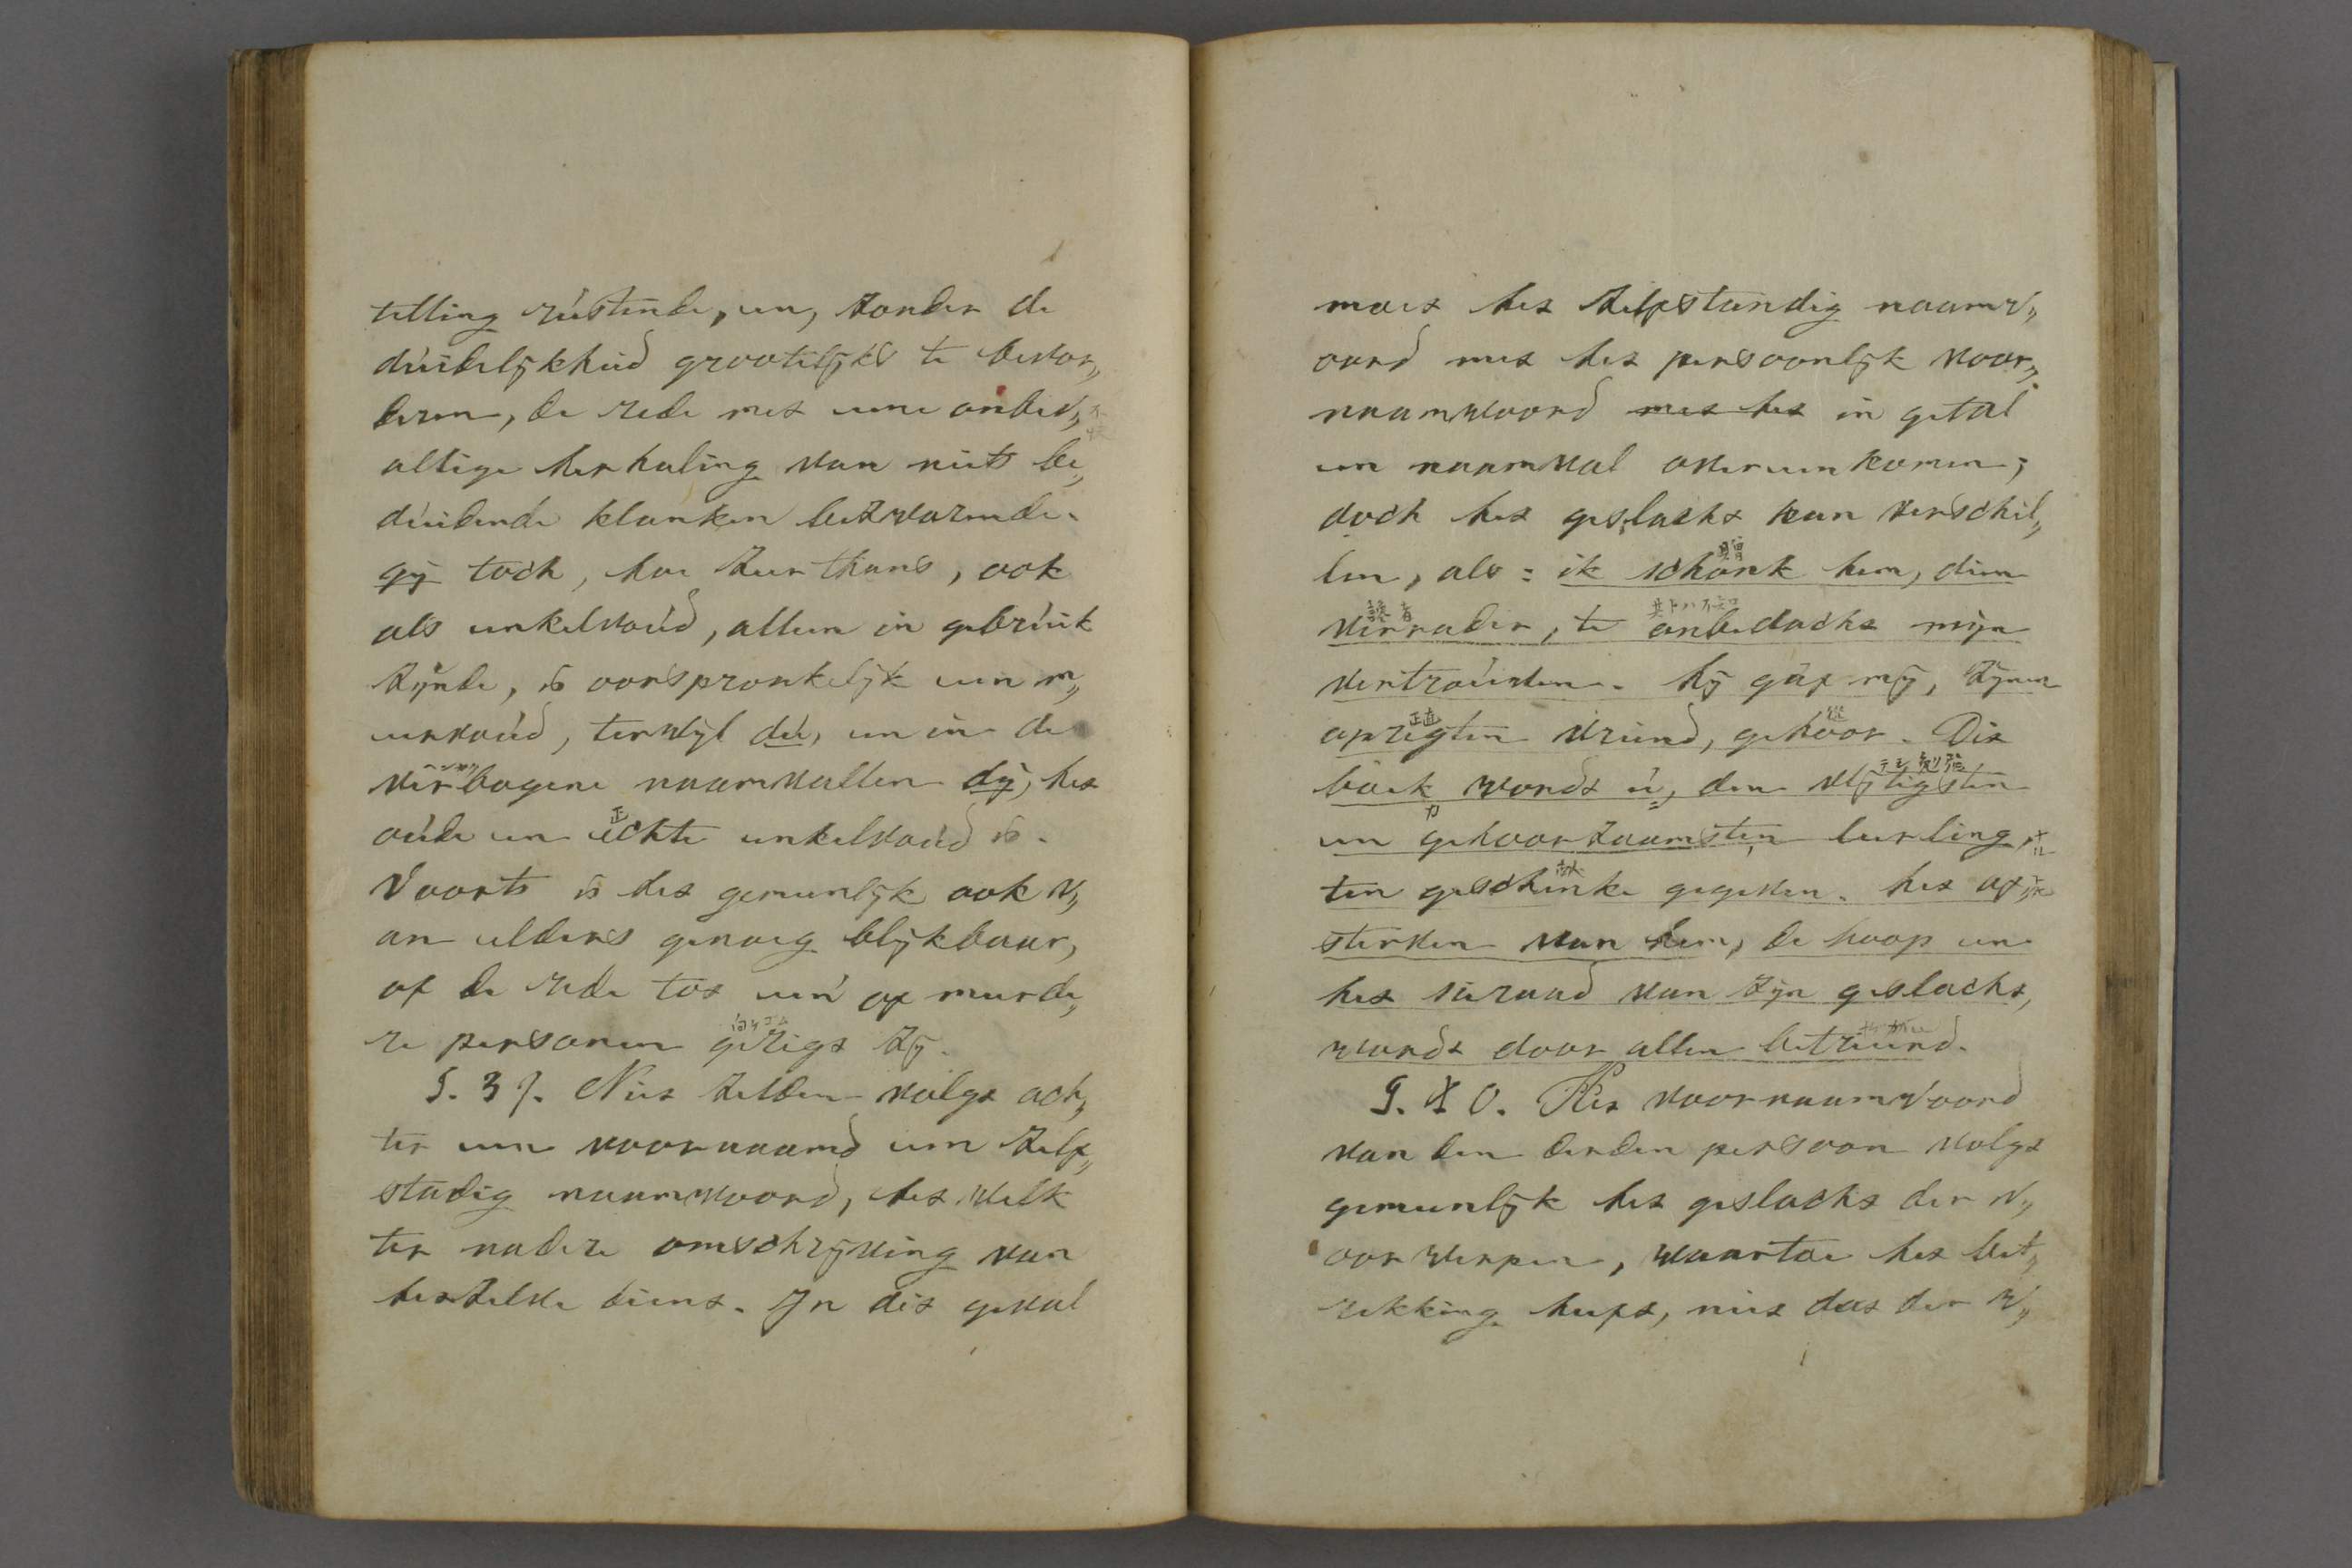 telling rústende, en, zonder de
dúidelijkheid grootelijks te bevor„
deren, de rede met eene onbev„
allige herhaling van niets be„
dúidende klanken bezwarende.
gij toch, hoe zeer thans, ook
als enkelvoúd, alleen in gebrúik
zijnde, is oorspronkelijk een m„
eervoúd, terwijl dú, en in de
verbogene naamvallen dij, het
oúde en echte enkelvoúd is.
正
Voorts is het gemeenlijk ook v„
an elders genoeg blijkbaar,
of de rede tot een' of meerde„
re personen gerigt zij.
§. 39. Niet zelden volgt ach„
ter een voornaamd een zelf„
stadig naamwoord, het welk
ter nadere omschrijving van
hetzelve dient. In dit geval
moet het zelfstandig naamw„
oord met het persoonlijk voor„
naamwoord met het in getal
en naamval overeenkomen;
doch het geslacht kan verschil„
贈
len, als: ik schonk hem, dien
verrader, te onbedacht mijn
vertroúwen. hij gaf mij, zijnen
正直
opregten vriend, gehoor. Dit
勉強
boek wordt ú, den vlijtigsten
en gehoorzaamsten leerling,
ten geschenke gegeven. het af„
sterven van hem, de hoop en
het sieraad van zijn geslacht,
wordt door allen betreúrd.
§. 40. Het voornaamwoord
van den derden persoon volgt
gemeenlijk het geslacht der v„
oorwerpen, waartoe het bet„
rekking heeft, niet dat der w„